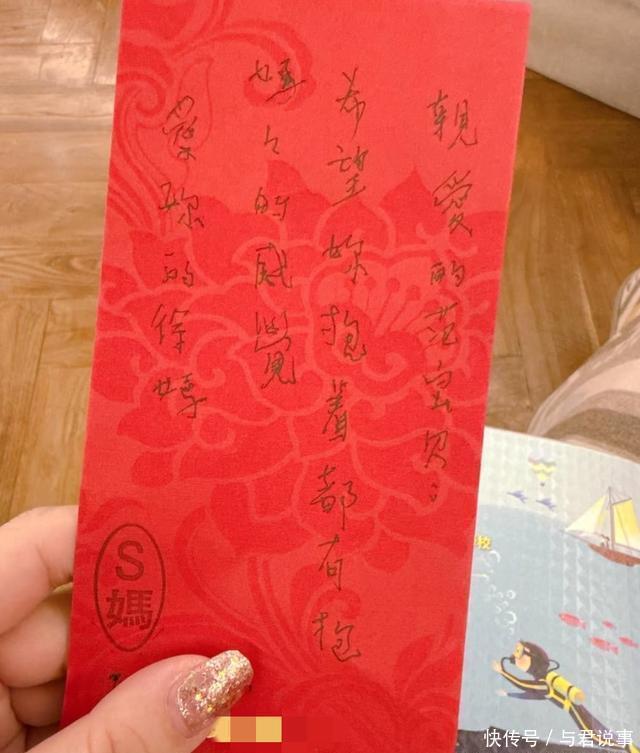 親愛的范宝贝：
希望妳抱著都有抱
媽々的感覺
愛妳的徐媽
S媽
校
快传号 / 与君说事